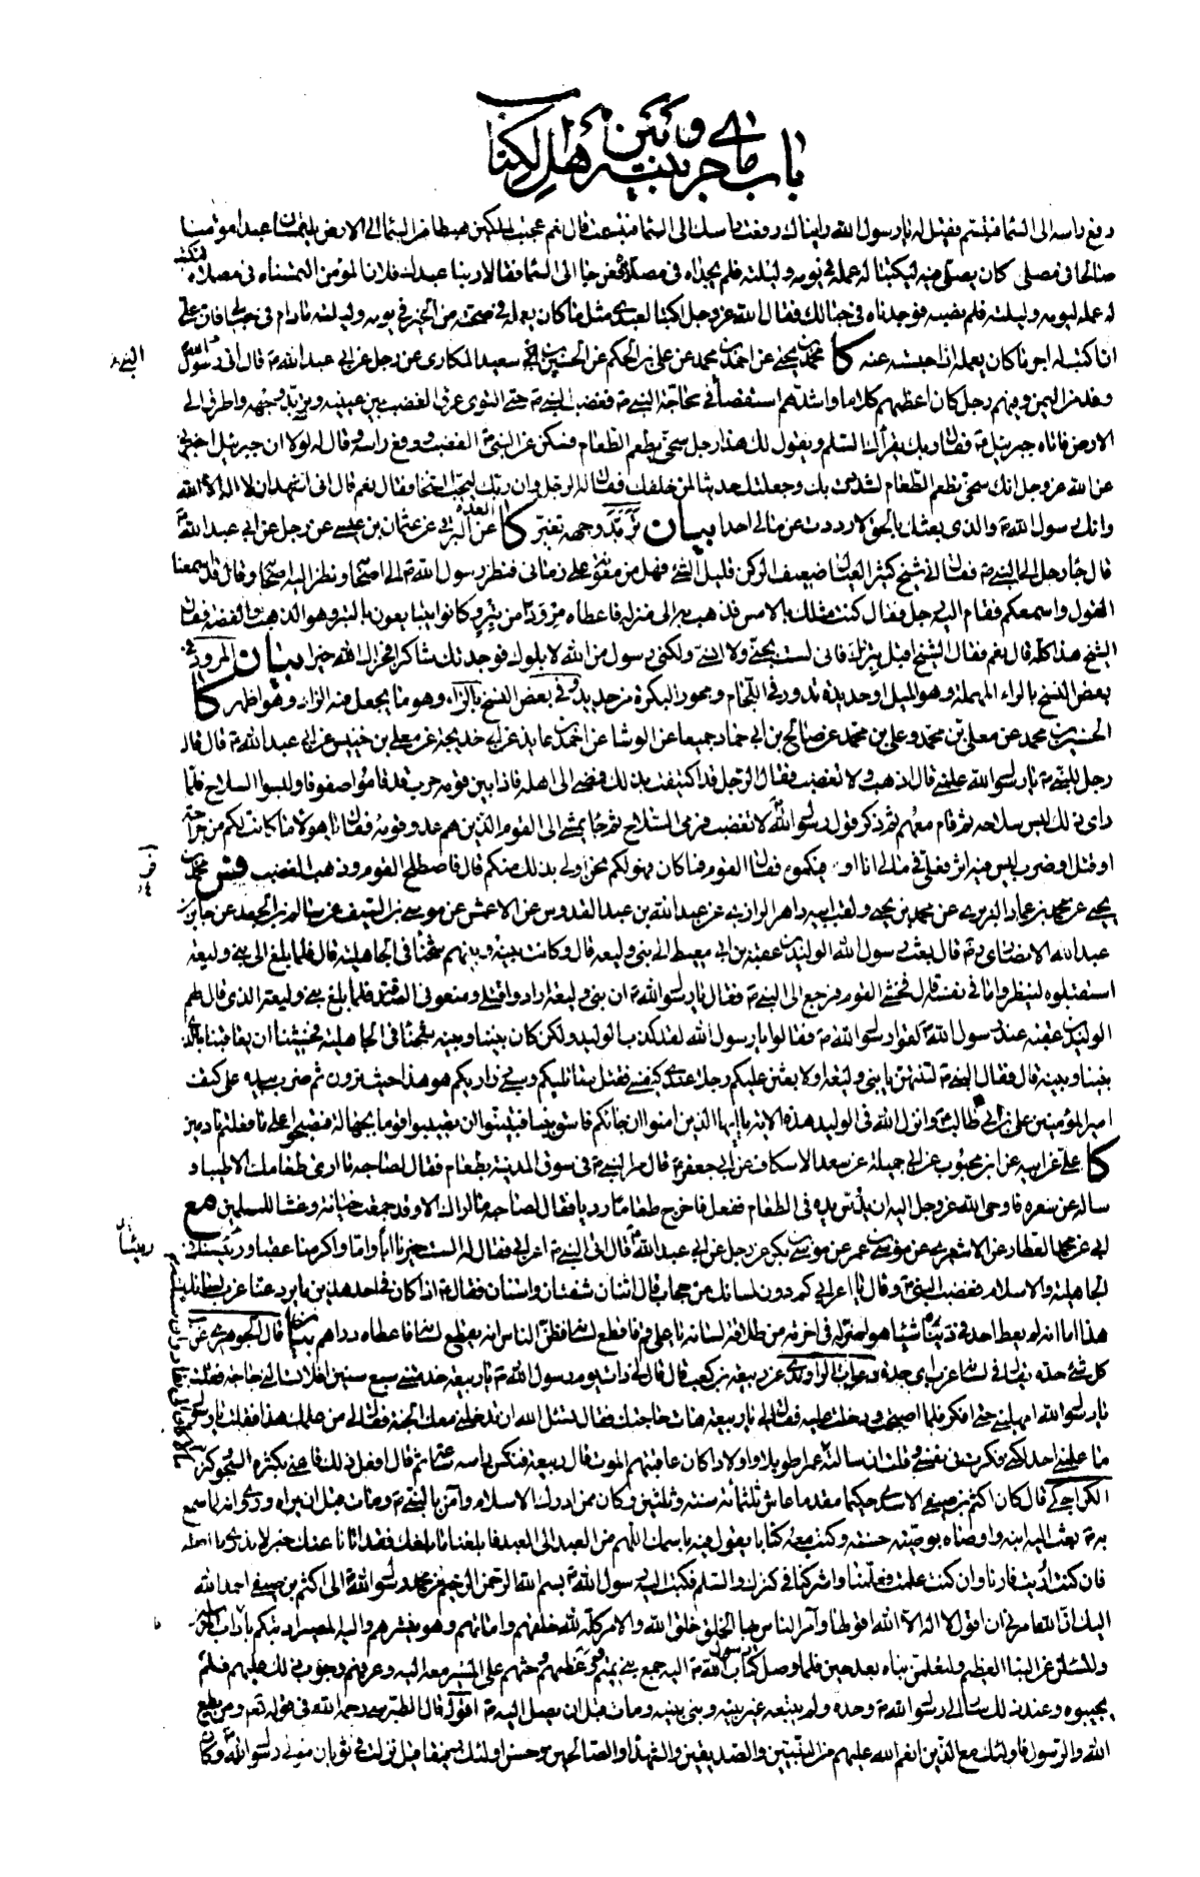 باب ما جرى بينه وبين أهل الكتاب
رفع راسه الى السماء فتبسم فقيل له يا رسول الله رايناك رفعت راسك الى السماء فتبسمت قال نعم عجبت لملكين هبطا من السماء الى الارض يلتمسان عبدا مؤمنا
صالحا فى مصلى كان يصلى فيه ليكتبا له عمله فى يومه وليلته فلم يجداه فى مصلاه فعرجا الى السماء فقالا ربنا عبدك فلان المؤمن التمسناه فى مصلاه لنكتب
له عمله ليومه وليلته فلم نصبه فوجدناه فى حبالك فقال الله عز وجل اكتبا لعبدى مثل ما كان يعمله فى صحته من الخير فى يومه وليلته ما دام فى حبالى فان على
ان اكتب له اجر ما كان يعمله اذا حبسته عنه كا محمد بن يحيى عن احمد بن محمد عن على بن الحكم عن الحسين بن ابى سعيد المكارى عن رجل عن ابى عبد الله قال اتى رسول الله
النبى
وفد من اليمن وفيهم رجل كان اعظمهم كلاما واشدهم استقصاء فى محاجة النبى فغضب النبى حتى التوى عرق الغضب بين عينيه وتربد وجهه واطرق الى
الارض فاتاه جبرئيل فقال ربك يقرأك السلام ويقول لك هذا رجل سخى يطعم الطعام فسكن عن النبى الغضب ورفع راسه وقال له لولا ان جبرئيل اخبرنى
عن الله عز وجل انك سخى تطعم الطعام لشردت بك وجعلتك حديثا لمن خلفك فقال له الرجل وان ربك ليحب السخاء فقال نعم قال انى اشهد ان لا اله الا الله
وانك رسول الله والذى بعثك بالحق لا رددت عن مالى احدا بيان تربد وجهه تغير كا العدة عن البرقى عن عثمان بن عيسى عن رجل عن ابى عبد الله
قال جاء رجل الى النبى فقال انى شيخ كثير العيال ضعيف الركن قليل الشىء فهل من معونة على زمانى فنظر رسول الله الى اصحابه ونظر اليه اصحابه وقال قد اسمعنا
القول واسمعكم فقام اليه رجل فقال كنت مثلك بالامس فذهب به الى منزله فاعطاه مرودا من تبر وكانوا يتبايعون بالتبر وهو الذهب والفضة فقال
الشيخ هذا كله قال نعم فقال الشيخ اقبل تبرك فانى لست بجنى ولا انسى ولكنى رسول من الله لابلوك فوجدتك شاكرا فجزاك الله خيرا بيان المرود فى
بعض النسخ بالراء المهملة وهو الميل او حديدة تدور فى اللجام ومحور البكرة من حديد وفى بعض النسخ بالزاء وهو ما يجعل فيه الزاد وهو اظهر كا
الحسين بن محمد عن معلى بن محمد وعلى بن محمد عن صالح بن ابى حماد جميعا عن الوشا عن احمد بن عايذ عن ابى خديجة عن معلى بن خنيس عن ابى عبد الله قال قال
رجل للنبى يا رسول الله علمنى قال اذهب ولا تغضب فقال الرجل قد اكتفيت بذلك فمضى الى اهله فاذا بين قومه حرب قد قاموا صفوفا ولبسوا السلاح فلما
راى ذلك لبس سلاحه ثم قام معهم ثم ذكر قول رسول الله لا تغضب فرمى السلاح ثم جاء يمشى الى القوم الذين هم عدو قومه فقال يا هؤلاء ما كانت لكم من جراحة
او قتل او ضرب ليس فيه اثر فعلى فى مالى انا اوفيكموه فقال القوم فما كان فهو لكم نحن اولى بذلك منكم قال فاصطلح القوم وذهب الغضب
يحيى عن محمد بن يحيى ولقب ابيه داهر الرازى عن عبد الله بن عبد القدوس عن الاعمش عن موسى بن المسيب عن سالم بن ابى الجعد عن جابر بن
عبد الله الانصارى قال بعث رسول الله الوليد بن عقبة بن ابى معيط الى بنى وليعة قال وكانت بينه وبينهم شحناء فى الجاهلية قال فلما بلغ الى بنى وليعة
استقبلوه لينظروا ما فى نفسه قال فخشى القوم فرجع الى النبى فقال يا رسول الله ان بنى وليعة ارادوا قتلى ومنعونى الصدقة فلما بلغ بنى وليعة الذى قال لهم
الوليد بن عقبة عند رسول الله لقوا رسول الله فقالوا يا رسول الله لقد كذب الوليد ولكن كان بيننا وبينه شحناء فى الجاهلية فخشينا ان يعاقبنا بالذى
بيننا وبينه قال فقال النبى لتنتهن يا بنى وليعة او لابعثن اليكم رجلا عندى كنفسى فقتل مقاتليكم وسبى ذراريكم هو هذا حيث ترون ثم ضرب بيده على كتف
امير المؤمنين على بن ابى طالب وانزل الله فى الوليد هذه الاية يا ايها الذين امنوا ان جاءكم فاسق بنبا فتبينوا ان تصيبوا قوما بجهالة فتصبحوا على ما فعلتم نادمين
كا على عن ابيه عن ابن محبوب عن ابى جميلة عن سعد الاسكاف عن ابى جعفر قال مر النبى فى سوق المدينة بطعام فقال لصاحبه ما ارى طعامك الا طيبا و
ساله عن سعره فاوحى الله عز وجل اليه ان يدس يده فى الطعام ففعل فاخرج طعاما رديا فقال لصاحبه ما اراك الا وقد جمعت خيانة وغشا للمسلمين مع
ابى عن محمد العطار عن الاشعرى عن موسى بن عمر عن موسى بن بكر عن رجل عن ابى عبد الله قال اتى النبى اعرابى فقال له الست خيرنا ابا واما واكرمنا عقبا ورئيسنا فى
رئيسا
الجاهلية والاسلام فغضب النبى وقال يا اعرابى كم دون لسانك من حجاب قال اثنان شفتان واسنان فقال اما كان فى احد هذين ما يرد عنا غرب لسانك
هذا اما انه لم يعط احد فى دنياه شيئا هو اضر له فى اخرته من طلاقة لسانه يا على قم فاقطع لسانه فظن الناس انه يقطع لسانه فاعطاه دراهم بيان قال الجوهرى غرب
كل شىء حده يقال فى لسانه غرب اى حدة دعوات الراوندى عن ربيعة بن كعب قال قال لى ذات يوم رسول الله يا ربيعة خدمتنى سبع سنين افلا تسالنى حاجة فقلت
يا رسول الله امهلنى حتى افكر فلما اصبحت ودخلت عليه فقال لى يا ربيعة هات حاجتك فقلت تسئل الله ان يدخلنى معك الجنة فقال لى من علمك هذا فقلت يا رسول الله
ما علمنى احد لكنى فكرت فى نفسى وقلت ان سالته عمرا طويلا واولادا كان عاقبتهم الموت قال ربيعة فنكس راسه ساعة ثم قال افعل ذلك فاعنى بكثرة السجود كنز
الكراجكى قال كان اكثم بن صيفى الاسدى حكيما مقدما عاش ثلثمائة سنة وثلثين وكان ممن ادرك الاسلام وآمن بالنبى ومات قبل ان يراه وروى انه لما سمع
به بعث اليه ابنه واوصاه بوصية حسنة وكتب معه كتابا يقول فيه باسمك اللهم من العبد الى العبد فابلغنا ما بلغك فقد اتانا عنك خبر لا ندرى ما اصله
فان كنت اريت فارنا وان كنت علمت فعلمنا واشركنا فى كنزك والسلام فكتب اليه رسول الله بسم الله الرحمن الرحيم من محمد رسول الله الى اكثم بن صيفى احمد الله
اليك ان الله امرنى ان اقول لا اله الا الله اقولها وآمر الناس بها الخلق خلق الله والامر كله لله خلقهم واماتهم وهو ينشرهم واليه المصير ادبتكم باداب المرسلين
ولتسئلن عن النبا العظيم ولتعلمن نباه بعد حين فلما وصل كتاب رسول الله اليه جمع بنى تميم ووعظهم وحثهم على المسير معه اليه وعرفهم وجوب ذلك عليهم فلم
يجيبوه وعند ذلك سار الى رسول الله وحده ولم يتبعه غير بنيه وبنى بنيه ومات قبل ان يصل اليه اقول قال الطبرسى رحمه الله فى قوله تعالى ومن يطع
الله والرسول فاولئك مع الذين انعم الله عليهم من النبيين والصديقين والشهداء والصالحين وحسن اولئك رفيقا قيل نزلت فى ثوبان مولى رسول الله وكان